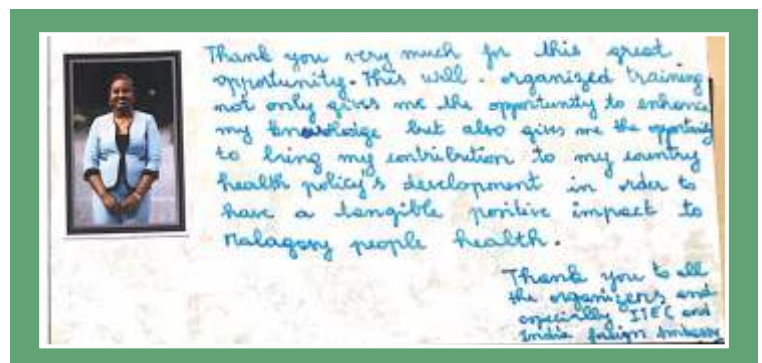 Thank you very much for this great
opportunity. This well-organized training
not only gives me the opportunity to enhance
my knowledge but also gives me the opportunity
to bring my contribution to my country
health policy's development in order to
have a tangible positive impact to
Malagasy people health.
Thank you to all
the organizers and
especially ITEC and
India foreign Embassy